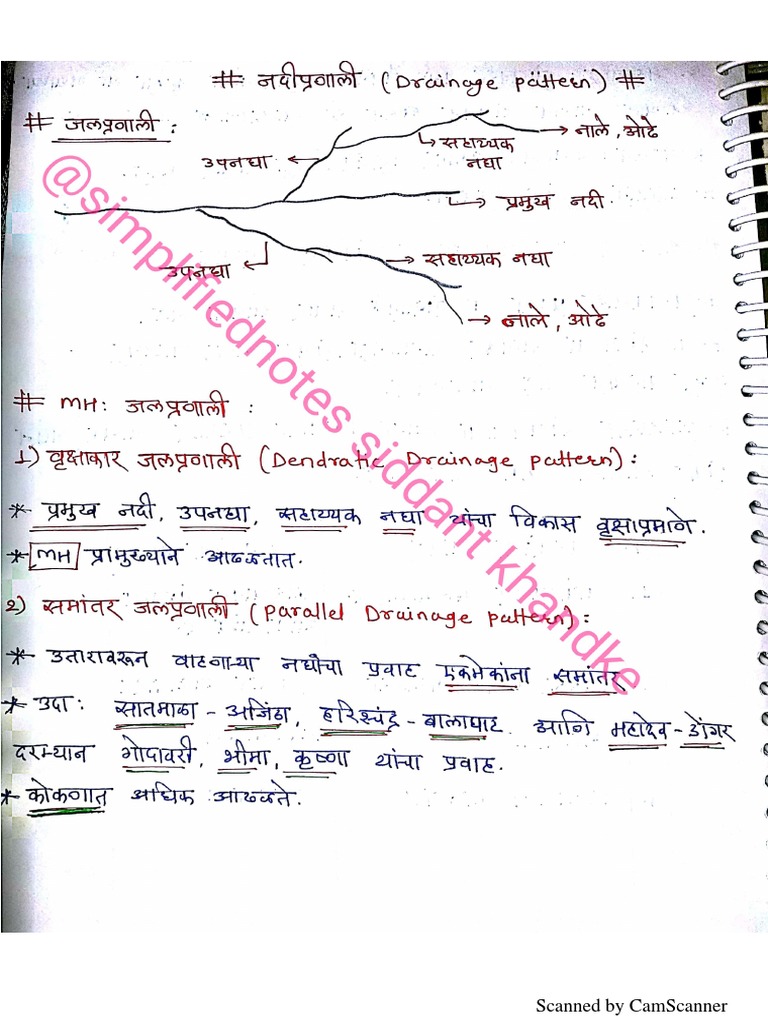 # नदीप्रणाली (Drainage pattern) #
# जलप्रणाली :
उपनद्या
सहाय्यक नद्या
नाले, ओढे
प्रमुख नदी.
उपनद्या
सहाय्यक नद्या
नाले, ओढे
# MH: जलप्रणाली :
1) वृक्षाकार जलप्रणाली (Dendratic Drainage pattern) :
* प्रमुख नदी, उपनद्या, सहाय्यक नद्या यांचा विकास वृक्षाप्रमाणे.
* MH प्रामुख्याने आढळतात.
2) समांतर जलप्रणाली (parallel Drainage pattern) :
* उतारावरून वाहणाऱ्या नद्यांचा प्रवाह एकमेकांना समांतर
* उदा: सातमाळा - अजिंठा, हरिश्चंद्र - बालाघाट आणि महादेव - डोंगर
दरम्यान गोदावरी, भीमा, कृष्णा यांचा प्रवाह.
* कोकणात अधिक आढळते.
@simplifiednotes siddant khandke
Scanned by CamScanner